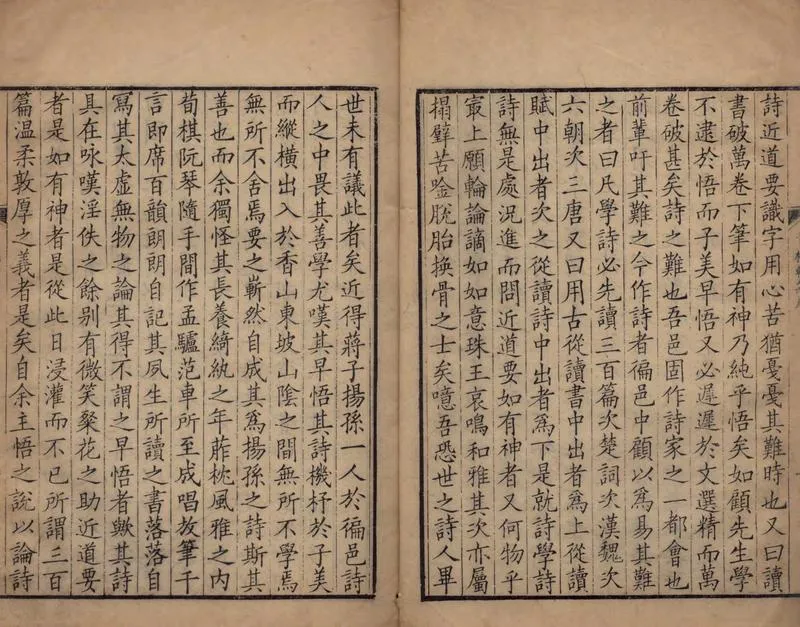 詩近道要識字用心苦猶憂憂其難時也又曰讀
書破萬卷下筆如有神乃純乎悟矣如顧先生學
不逮於悟而子美早悟又必遲遲於文選精而萬
卷破甚矣詩之難也吾邑固作詩家之一都會也
前輩吁其難之今作詩者徧邑中顧以為易其難
之者曰凡學詩必先讀三百篇次楚詞次漢魏次
六朝次三唐又曰用古從讀書中出者為上從讀
賦中出者次之從讀詩中出者為下是就詩學詩
詩無是處況進而問近道要如有神者又何物乎
寂上願輪論謫如如意珠王哀鳴和雅其次亦屬
搨壁苦唫脫胎換骨之士矣噫吾恐世之詩人畢
世未有議此者矣近得蔣子揚孫一人於徧邑詩
人之中畏其善學尤嘆其早悟其詩機杼於子美
而縱橫出入於香山東坡山陰之間無所不學焉
無所不舍焉要之嶄然自成其為揚孫之詩斯其
善也而余獨怪其長養綺紈之年葄枕風雅之内
荀棋阮琴隨手間作孟驢范車所至成唱放筆千
言即席百韻朗朗自記其夙生所讀之書落落自
寫其太虛無物之論其得不謂之早悟者歟其詩
具在咏嘆淫佚之餘别有微笑粲花之助近道要
者是如有神者是從此日浸灌而不已所謂三百
篇溫柔敦厚之義者是矣自余主悟之說以論詩